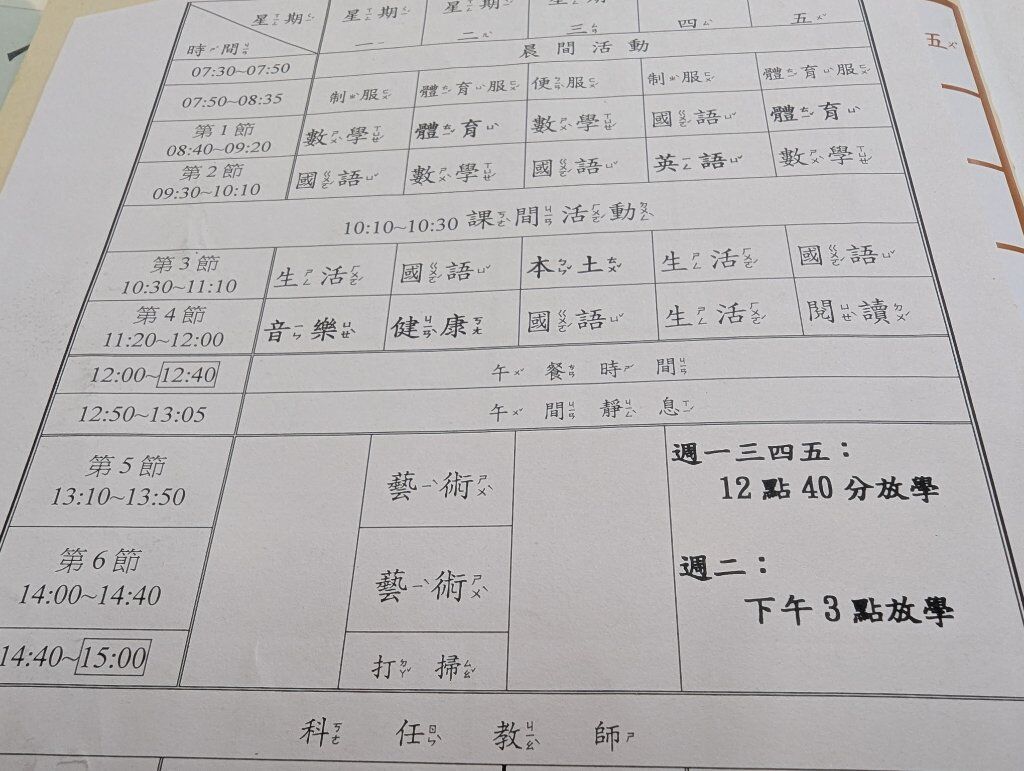 星期 星期一 星期二 星期三 星期四 星期五
時間
07:30~07:50 晨間活動
07:50~08:35 制服 體育服 便服 制服 體育服
第1節 08:40~09:20 數學 體育 數學 國語 體育
第2節 09:30~10:10 國語 數學 國語 英語 數學
10:10~10:30 課間活動
第3節 10:30~11:10 生活 國語 本土 生活 國語
第4節 11:20~12:00 音樂 健康 國語 生活 閱讀
12:00~12:40 午餐時間
12:50~13:05 午間靜息
第5節 13:10~13:50 藝術
第6節 14:00~14:40 藝術
14:40~15:00 打掃
週一三四五：
12點40分放學
週二：
下午3點放學
科任教師
五